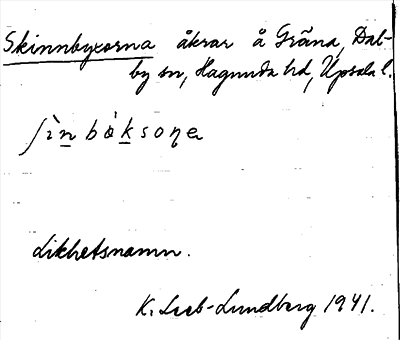 Skinnbyxorna åkrar å Gräna, Dal-
by sn, Hagunda hd, Upsala l.
ʃìn bøksoɳa
Likhetsnamn.
K. Leeb-Lundberg 1941.